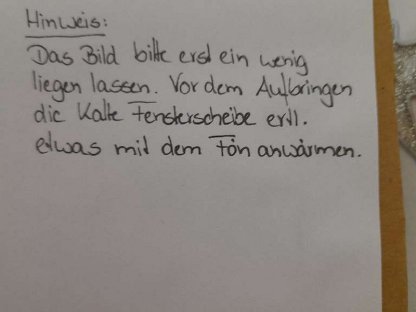 Hinweis:
Das Bild bitte erst ein wenig
liegen lassen. Vor dem Aufbringen
die Kalte Fensterscheibe evtl.
etwas mit dem Fön anwärmen.